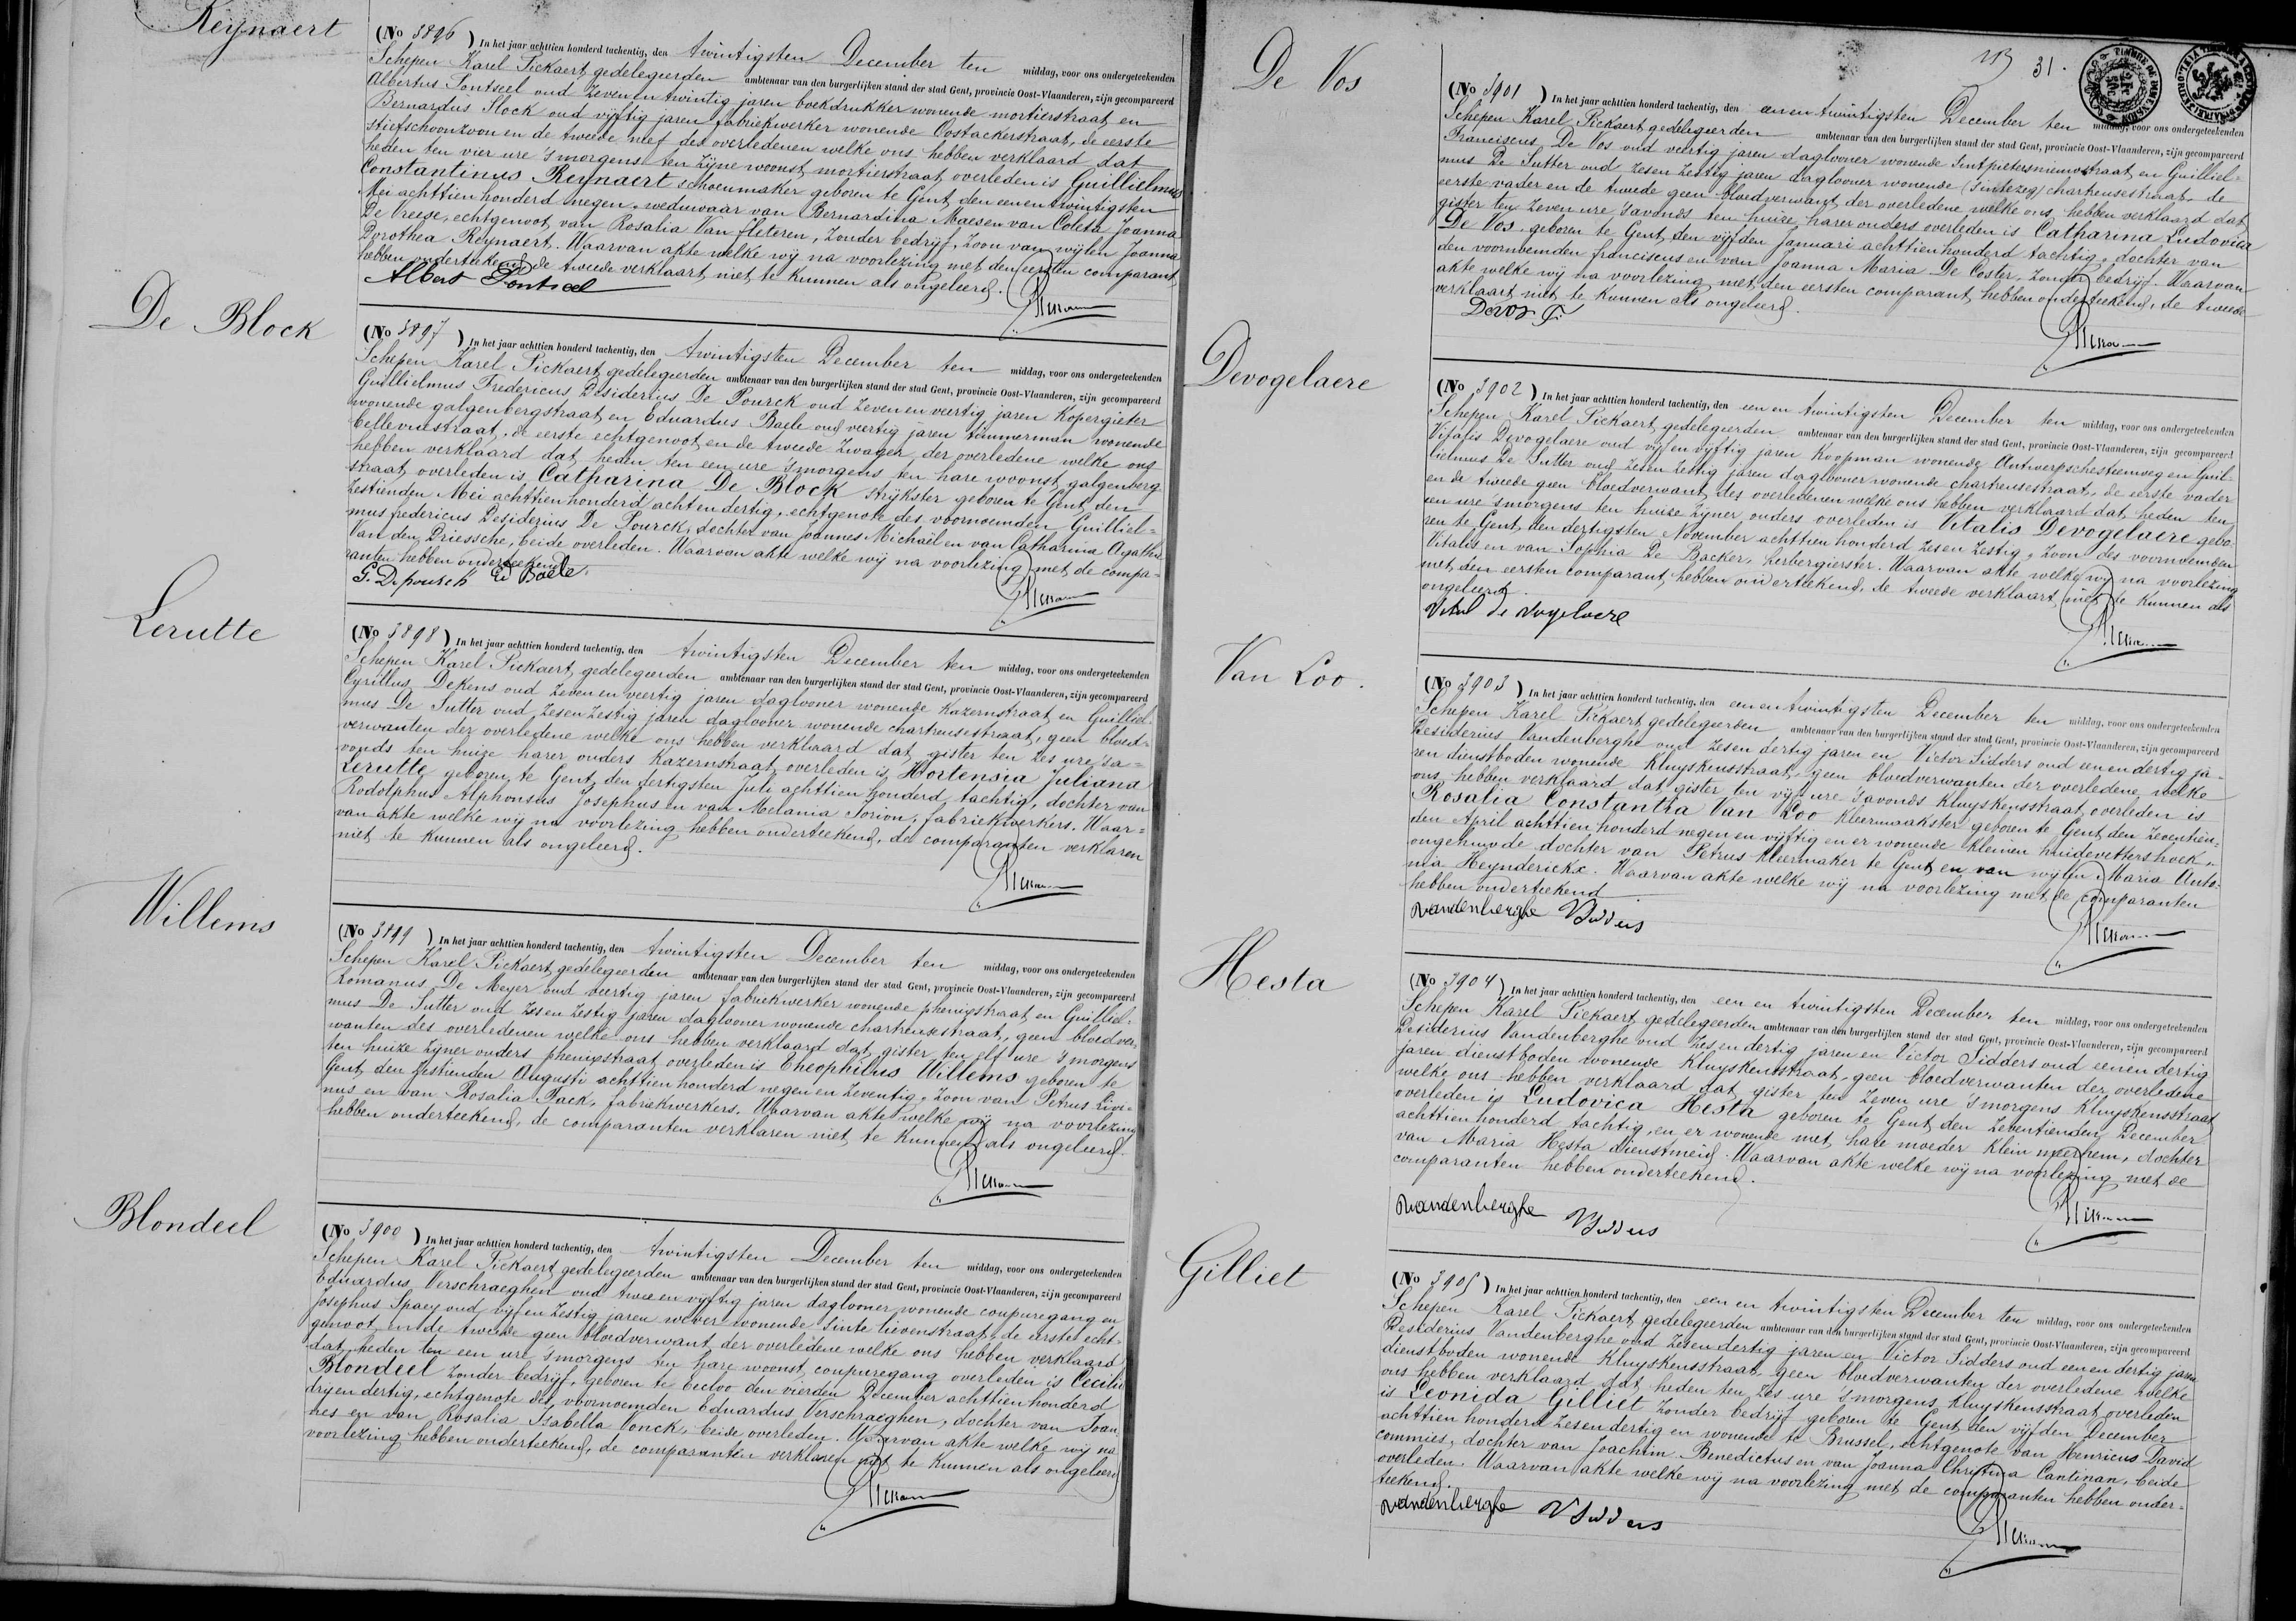 Reynaert
(No 3896) In het jaar achttien honderd tachentig, den twintigsten December ten middag, voor ons ondergeteekenden
Schepen Karel Pickaert gedelegeerden ambtenaar van den burgerlijken stand der stad Gent, provincie Oost-Vlaanderen, zijn gecompareerd
Albertus Pontseel oud Zeven en twintig jaren boekdrukker wonende mortierstraat, en
Bernardus Slock oud vijftig jaren fabriekwerker wonende Oostackerstraat, de eerste
stiefschoonzoon en de tweede neef des overledenen welke ons hebben verklaard dat
heden ten vier ure 's morgens ten zijne woonst mortierstraat overleden is Guillielmus
Constantinus Reynaert schoenmaker geboren te Gent den eenen twintigsten
Mei achttien honderd negen, weduwaar van Bernardina Maesen van Coleta Joanna
De Vreese, echtgenoot van Rosalia Van fleteren, Zonder bedrijf, Zoon van wijlen Joanna
Dorothea Reynaert. Waarvan akte welke wij na voorlezing met den eersten comparant
hebben onderteekend de tweede verklaart niet te kunnen als ongeleerd.
Albert Pontseel
De Block
(No 3897) In het jaar achttien honderd tachentig, den twintigsten December ten middag, voor ons ondergeteekenden
Schepen Karel Pickaert gedelegeerden ambtenaar van den burgerlijken stand der stad Gent, provincie Oost-Vlaanderen, zijn gecompareerd
Guillielmus Fredericus Desiderius De Pourck oud Zeven en veertig jaren Kopergieter
wonende galgenbergstraat, en Eduardus Baele oud veertig jaren timmerman wonende
bellevuestraat, de eerste echtgenoot en de tweede Zwager der overledene welke ons
hebben verklaard dat heden ten een ure 's morgens ten hare woonst galgenberg
straat overleden is Catharina De Block strijkster geboren te Gent den
Zestienden Mei achttien honderd acht en dertig, echtgenote des voornoemden Guilliel=
mus fredericus Desiderius De Pourck, dochter van Joannes Michaël en van Catharina Agatha
Van den Driessche, beide overleden. Waarvan akte welke wij na voorlezing met de compa=
ranten hebben onderteekend.
G. Depourck Ed Baele
Lerutte
(No 3898) In het jaar achttien honderd tachentig, den twintigsten December ten middag, voor ons ondergeteekenden
Schepen Karel Pickaert gedelegeerden ambtenaar van den burgerlijken stand der stad Gent, provincie Oost-Vlaanderen, zijn gecompareerd
Cyrillus Dekens oud Zeven en veertig jaren daglooner wonende Kazernstraat en Guilliel=
mus De Sutter oud Zes en Zestig jaren daglooner wonende chartreusestraat, geen bloed=
verwanten der overledene welke ons hebben verklaard dat gister ten zes ure 'sa=
vonds ten huize harer ouders Kazernstraat overleden is Hortensia Juliana
Lerutte geboren te Gent den dertigsten Juli achttien honderd tachtig, dochter van
Rodolphus Alphonsus Josephus en van Melania Sorion, fabriekwerkers. Waar=
van akte welke wij na voorlezing hebben onderteekend, de comparanten verklaren
niet te kunnen als ongeleerd.
Willems
(No 3899) In het jaar achttien honderd tachentig, den twintigsten December ten middag, voor ons ondergeteekenden
Schepen Karel Pickaert gedelegeerden ambtenaar van den burgerlijken stand der stad Gent, provincie Oost-Vlaanderen, zijn gecompareerd
Romanus De Meyer oud veertig jaren fabriekwerker wonende phenixstraat en Guilliel=
mus De Sutter oud Zes en Zestig jaren daglooner wonende chartreusestraat, geen bloedver=
wanten des overledenen welke ons hebben verklaard dat gister ten elf ure 's morgens
ten huize Zijner ouders phenixstraat overleden is Theophilus Willems geboren te
Gent den Zestienden Augusti achttien honderd negen en Zeventig, Zoon van Petrus Livi=
nus en van Rosalia Pack, fabriekwerkers. Waarvan akte welke wij na voorlezing
hebben onderteekend, de comparanten verklaren niet te kunnen als ongeleerd.
Blondeel
(No 3900) In het jaar achttien honderd tachentig, den twintigsten December ten middag, voor ons ondergeteekenden
Schepen Karel Pickaert gedelegeerden ambtenaar van den burgerlijken stand der stad Gent, provincie Oost-Vlaanderen, zijn gecompareerd
Eduardus Verschraeghen oud twee en vijftig jaren daglooner wonende coupuregang en
Josephus Spaey oud vijf en Zestig jaren wever wonende Sinte lievenstraat, de eerste echt=
genoot en de tweede geen bloedverwant der overledene welke ons hebben verklaard
dat heden ten een ure 's morgens ten hare woonst coupuregang overleden is Cecilia
Blondeel Zonder bedrijf, geboren te Eecloo den vierden December achttien honderd
drij en dertig, echtgenote des voornoemden Eduardus Verschraeghen, dochter van Joan=
nes en van Rosalia Isabella Vonck, beide overleden. Waarvan akte welke wij na
voorlezing hebben onderteekend, de comparanten verklaren niet te kunnen als ongeleerd
31.
De Vos
(No 3901) In het jaar achttien honderd tachentig, den een en twintigsten December ten middag, voor ons ondergeteekenden
Schepen Karel Pickaert gedelegeerden ambtenaar van den burgerlijken stand der stad Gent, provincie Oost-Vlaanderen, zijn gecompareerd
Franciscus De Vos oud veertig jaren daglooner wonende Sintpietersnieuwstraat en Guilliel=
mus De Sutter oud Zes en Zestig jaren daglooner wonende chartreusestraat, de
eerste vader en de tweede geen bloedverwant der overledene welke ons hebben verklaard dat
gister ten Zeven ure 's avonds ten huize harer ouders overleden is Catharina Ludovica
De Vos, geboren te Gent den vijfden Januari achttien honderd tachtig, dochter van
den voornoemden franciscus en van Joanna Maria De Coster, Zonder bedrijf. Waarvan
akte welke wij na voorlezing met den eersten comparant hebben onderteekend, de tweede
verklaart niet te kunnen als ongeleerd.
Devos F.
Devogelaere
(No 3902) In het jaar achttien honderd tachentig, den een en twintigsten December ten middag, voor ons ondergeteekenden
Schepen Karel Pickaert gedelegeerden ambtenaar van den burgerlijken stand der stad Gent, provincie Oost-Vlaanderen, zijn gecompareerd
Vitalis Devogelaere oud vijf en vijftig jaren Koopman wonende Antwerpschesteenweg en Guil=
lielmus De Sutter oud Zes en Zestig jaren daglooner wonende chartreusestraat, de eerste vader
en de tweede geen bloedverwant des overledenen welke ons hebben verklaard dat heden ten
een ure 's morgens ten huize Zijner ouders overleden is Vitalis Devogelaere gebo=
ren te Gent den dertigsten November achttien honderd Zes en Zestig, Zoon des voornoemden
Vitalis en van Sophia De Backer, herbergierster. Waarvan akte welke wij na voorlezing
met den eersten comparant hebben onderteekend, de tweede verklaart niet te kunnen als
ongeleerd.
Vital de vogelaere
Van Loo.
(No 3903) In het jaar achttien honderd tachentig, den een en twintigsten December ten middag, voor ons ondergeteekenden
Schepen Karel Pickaert gedelegeerden ambtenaar van den burgerlijken stand der stad Gent, provincie Oost-Vlaanderen, zijn gecompareerd
Desiderius Vandenberghe oud Zes en dertig jaren en Victor Sidders oud een en dertig ja=
ren dienstboden wonende Kluyskensstraat, geen bloedverwanten der overledene welke
ons hebben verklaard dat gister ten vijf ure 's avonds Kluyskensstraat overleden is
Rosalia Constantia Van Loo kleermaakster geboren te Gent den Zeventien=
den April achttien honderd negen en vijftig en er wonende Kleinen huidevettershoek,
ongehuwde dochter van Petrus kleermaker te Gent en van wijlen Maria Anto=
nia Heynderickx. Waarvan akte welke wij na voorlezing met de comparanten
hebben onderteekend
Dvandenberghe VSidders
Hesta
(No 3904) In het jaar achttien honderd tachentig, den een en twintigsten December ten middag, voor ons ondergeteekenden
Schepen Karel Pickaert gedelegeerden ambtenaar van den burgerlijken stand der stad Gent, provincie Oost-Vlaanderen, zijn gecompareerd
Desiderius Vandenberghe oud Zes en dertig jaren en Victor Sidders oud een en dertig
jaren dienstboden wonende Kluyskensstraat, geen bloedverwanten der overledene
welke ons hebben verklaard dat gister ten Zeven ure 's morgens Kluyskensstraat
overleden is Ludovica Hesta geboren te Gent den Zeventienden December
achttien honderd tachtig, en er wonende met hare moeder Klein meerhem, dochter
van Maria Hesta dienstmeid. Waarvan akte welke wij na voorlezing met de
comparanten hebben onderteekend.
Dvandenberghe VSidders
Gilliet
(No 3905) In het jaar achttien honderd tachentig, den een en twintigsten December ten middag, voor ons ondergeteekenden
Schepen Karel Pickaert gedelegeerden ambtenaar van den burgerlijken stand der stad Gent, provincie Oost-Vlaanderen, zijn gecompareerd
Desiderius Vandenberghe oud Zes en dertig jaren en Victor Sidders oud een en dertig jaren
dienstboden wonende Kluyskensstraat, geen bloedverwanten der overledene welke
ons hebben verklaard dat heden ten Zes ure 's morgens Kluyskensstraat overleden
is Leonida Gilliet Zonder bedrijf geboren te Gent den vijfden December
achttien honderd Zes en dertig en wonende te Brussel, echtgenote van Henricus David
commies, dochter van Joachim Benedictus en van Joanna Christina Cantinan, beide
overleden. Waarvan akte welke wij na voorlezing met de comparanten hebben onder=
teekend.
Dvandenberghe VSidders